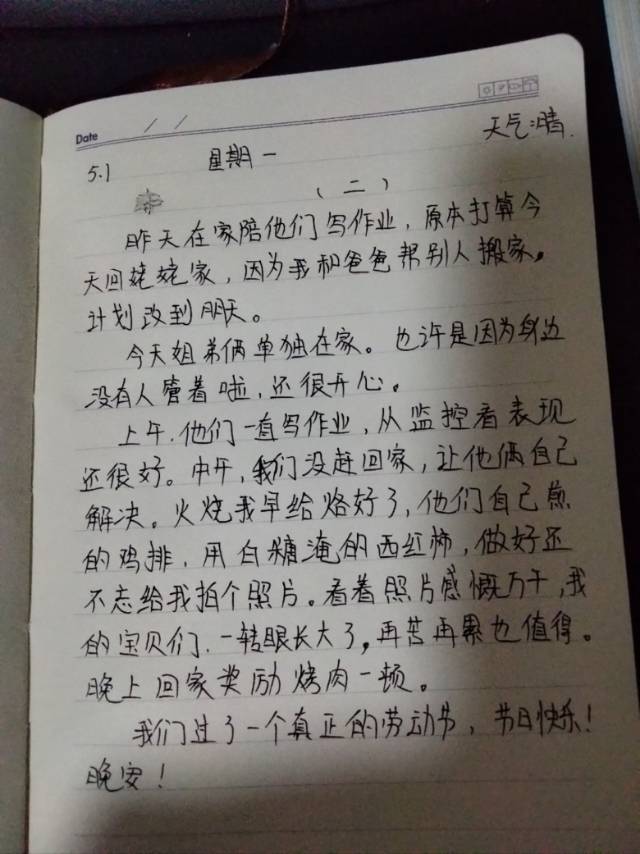 Date / /
5.1 星期一 天气:晴.
(二)
昨天在家陪他们写作业，原本打算今
天回姥姥家，因为我和爸爸帮别人搬家，
计划改到明天。
今天姐弟俩单独在家。也许是因为身边
没有人管着啦，还很开心。
上午.他们一直写作业，从监控看表现
还很好。中午，我们没赶回家，让他俩自己
解决。火烧我早给烙好了，他们自己煎
的鸡排，用白糖淹的西红柿，做好还
不忘给我拍个照片。看着照片感慨万千，我
的宝贝们.一转眼长大了，再苦再累也值得。
晚上回家奖励烤肉一顿。
我们过了一个真正的劳动节，节日快乐！
晚安！